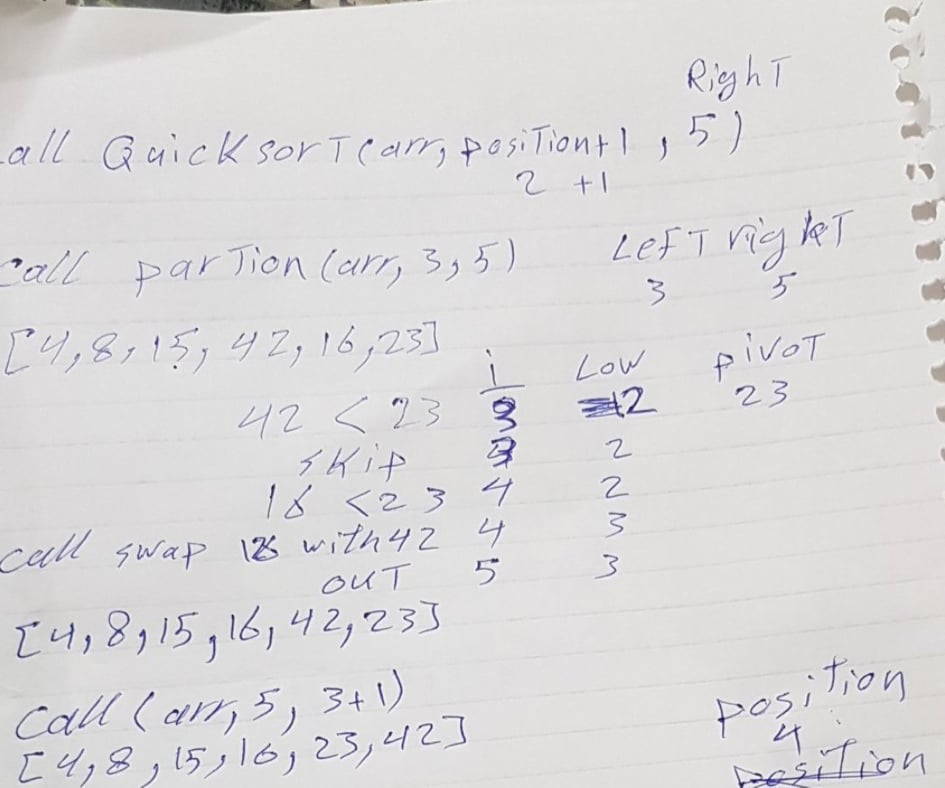 Right
all Quick sort (arr, position+1, 5)
2 +1
call partion (arr, 3, 5) Left right
3 5
[4,8,15, 42, 16,23]
i Low pivot
42 < 23 3 2 23
skip 3 2
16 <23 4 2
call swap 16 with 42 4 3
out 5 3
[4,8,15,16,42,23]
Call (arr, 5, 3+1) position
[4,8,15,16,23,42] 4
position